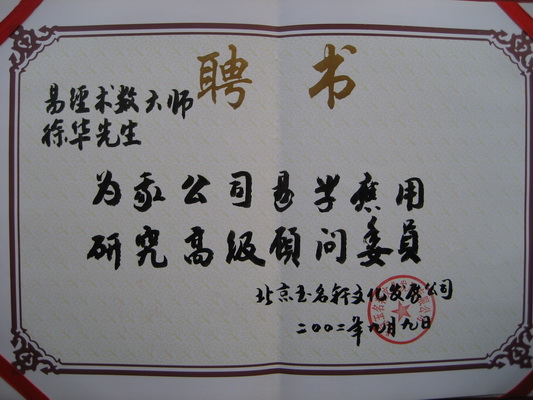 聘书
易经术数大师
徐华先生
为我公司易学应用
研究高级顾问委员
北京圣名轩文化发展公司
二〇〇二年九月九日